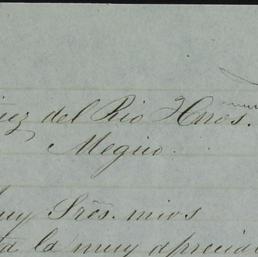 del Rio Hnos.
Megico.
muy Sres. mios
la muy aprecia